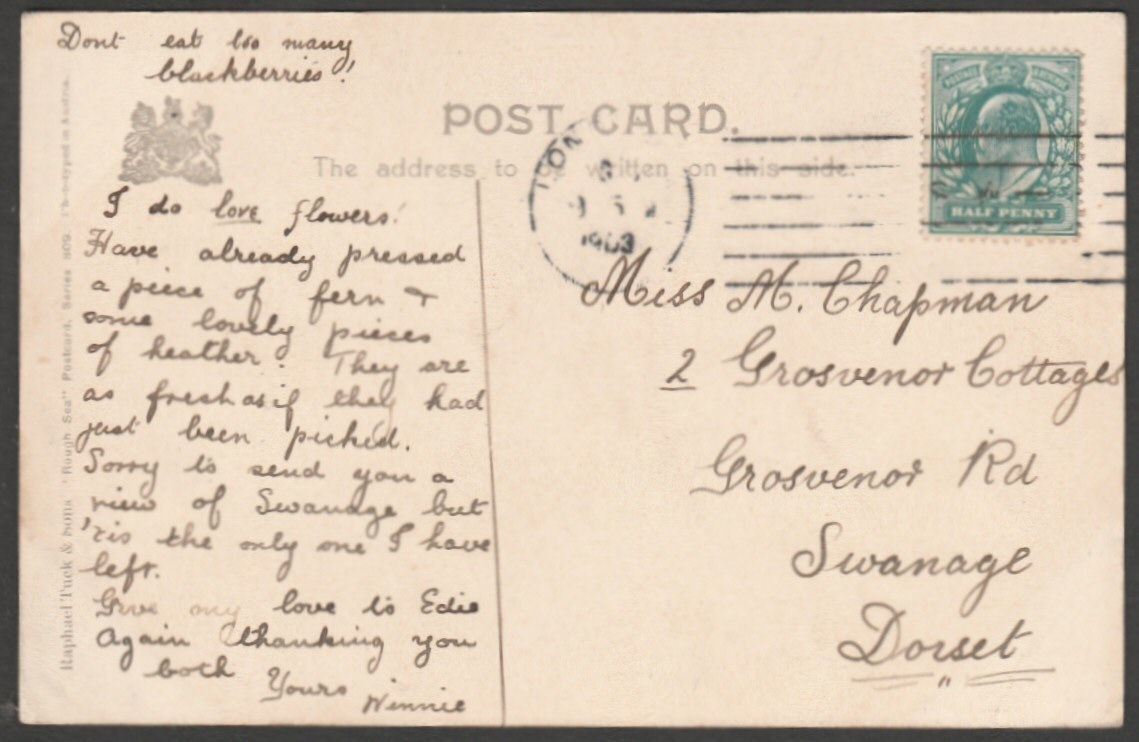 Dont eat too many
blackberries!
POST CARD.
The address to be written on this side.
HALF PENNY
1903
I do love flowers!
Have already pressed
a piece of fern &
some lovely pieces
of heather. They are
as fresh as if they had
just been picked.
Sorry to send you a
view of Swanage but
'tis the only one I have
left.
Give my love to Edie
Again thanking you
both
Yours
Winnie
Miss M. Chapman
2 Grosvenor Cottages
Grosvenor Rd
Swanage
Dorset
Raphael Tuck & Sons "Rough Sea" Postcard, Series 809.